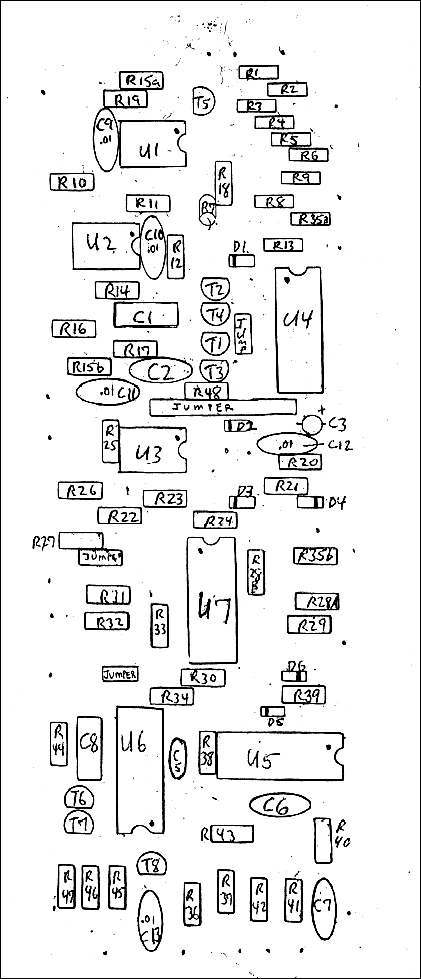 R15a
R1
R19
R2
T5
R3
C9
.01
R4
U1
R5
R6
R10
R
18
R9
R11
R7
R8
R35a
U2
C10
.01
R
12
D1
R13
R14
T2
C1
T4
U4
R16
JUMP
R17
T1
R15b
C2
T3
.01 C11
R48
JUMPER
+
C3
D2
R
25
U3
.01
C12
R20
R26
R23
R21
D3
D4
R22
R24
R27
JUMPER
R35b
R31
U7
R28A
R32
R
33
R29
JUMPER
R30
D6
R34
R39
D5
R
44
C8
U6
C
5
R
38
U5
T6
C6
T7
R 43
R
40
T8
R
47
R
46
R
45
.01
C13
R
36
R
39
R
42
R
41
C7